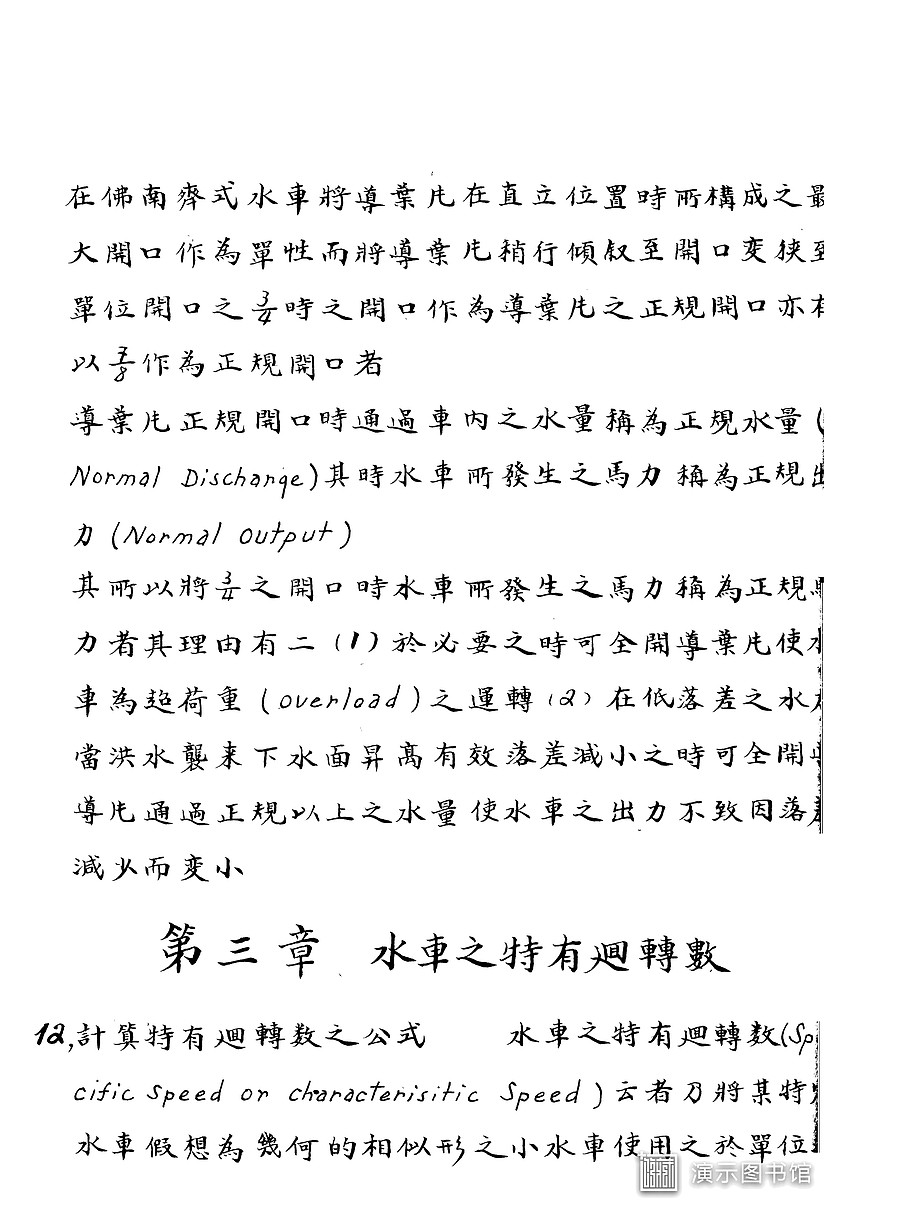 在佛南齊式水車將導葉片在直立位置時所構成之最
大開口作為單性而將導葉片稍行傾叙至開口変狭至
單位開口之3/4時之開口作為導葉片之正規開口亦有
以7/8作為正規開口者
導葉片正規開口時通過車内之水量稱為正規水量(
Normal Discharge)其時水車所發生之馬力稱為正規出
力(Normal output)
其所以將3/4之開口時水車所發生之馬力稱為正規馬
力者其理由有二(1)於必要之時可全開導葉片使水
車為超荷重(overload)之運轉(2)在低落差之水力
當洪水襲来下水面昇高有效落差減小之時可全開導
導片通過正規以上之水量使水車之出力不致因落差
減少而変小
第三章 水車之特有廻轉數
12,計算特有廻轉数之公式 水車之特有廻轉数(Sp
cific Speed or characterisitic Speed)云者乃將某特定
水車假想為幾何的相似形之小水車使用之於單位
演示图书馆